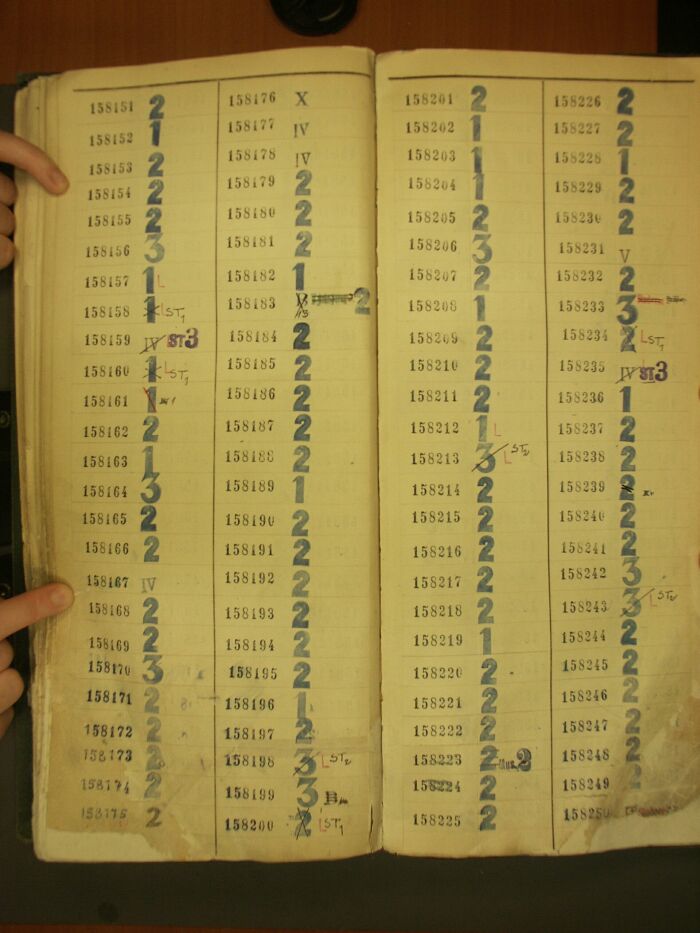 158151 2
158152 1
158153 2
158154 2
158155 2
158156 3
158157 1 L
158158 1 LST1
158159 IV ST3
158160 1 LST1
158161 1
158162 2
158163 1
158164 3
158165 2
158166 2
158167 IV
158168 2
158169 2
158170 3
158171 2
158172 2
158173 2
158174 2
158175 2
158176 X
158177 IV
158178 IV
158179 2
158180 2
158181 2
158182 1
158183 2
158184 2
158185 2
158186 2
158187 2
158188 2
158189 1
158190 2
158191 2
158192 2
158193 2
158194 2
158195 2
158196 1
158197 2
158198 3 LST2
158199 3
158200 2 LST1
158201 2
158202 1
158203 1
158204 1
158205 2
158206 3
158207 2
158208 1
158209 2
158210 2
158211 2
158212 1 L
158213 3 LST2
158214 2
158215 2
158216 2
158217 2
158218 2
158219 1
158220 2
158221 2
158222 2
158223 2 2
158224 2
158225 2
158226 2
158227 2
158228 1
158229 2
158230 2
158231 V
158232 2
158233 3
158234 2 LST1
158235 IV ST3
158236 1
158237 2
158238 2
158239 2
158240 2
158241 2
158242 3
158243 3 LST2
158244 2
158245 2
158246 2
158247 2
158248 2
158249 2
158250